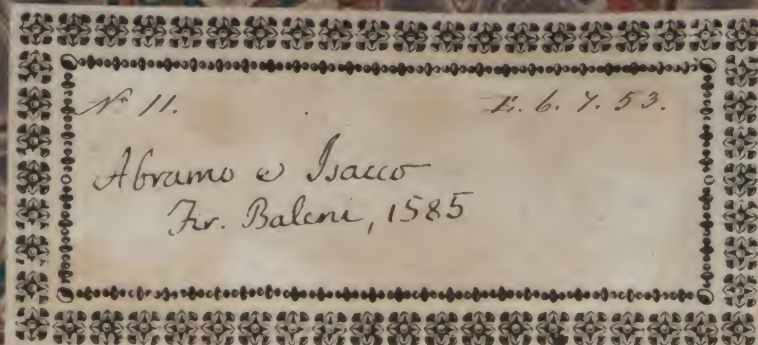 Nº 11. E. 6. 7. 53.
Abramo e Isacco
Fir. Baleni, 1585